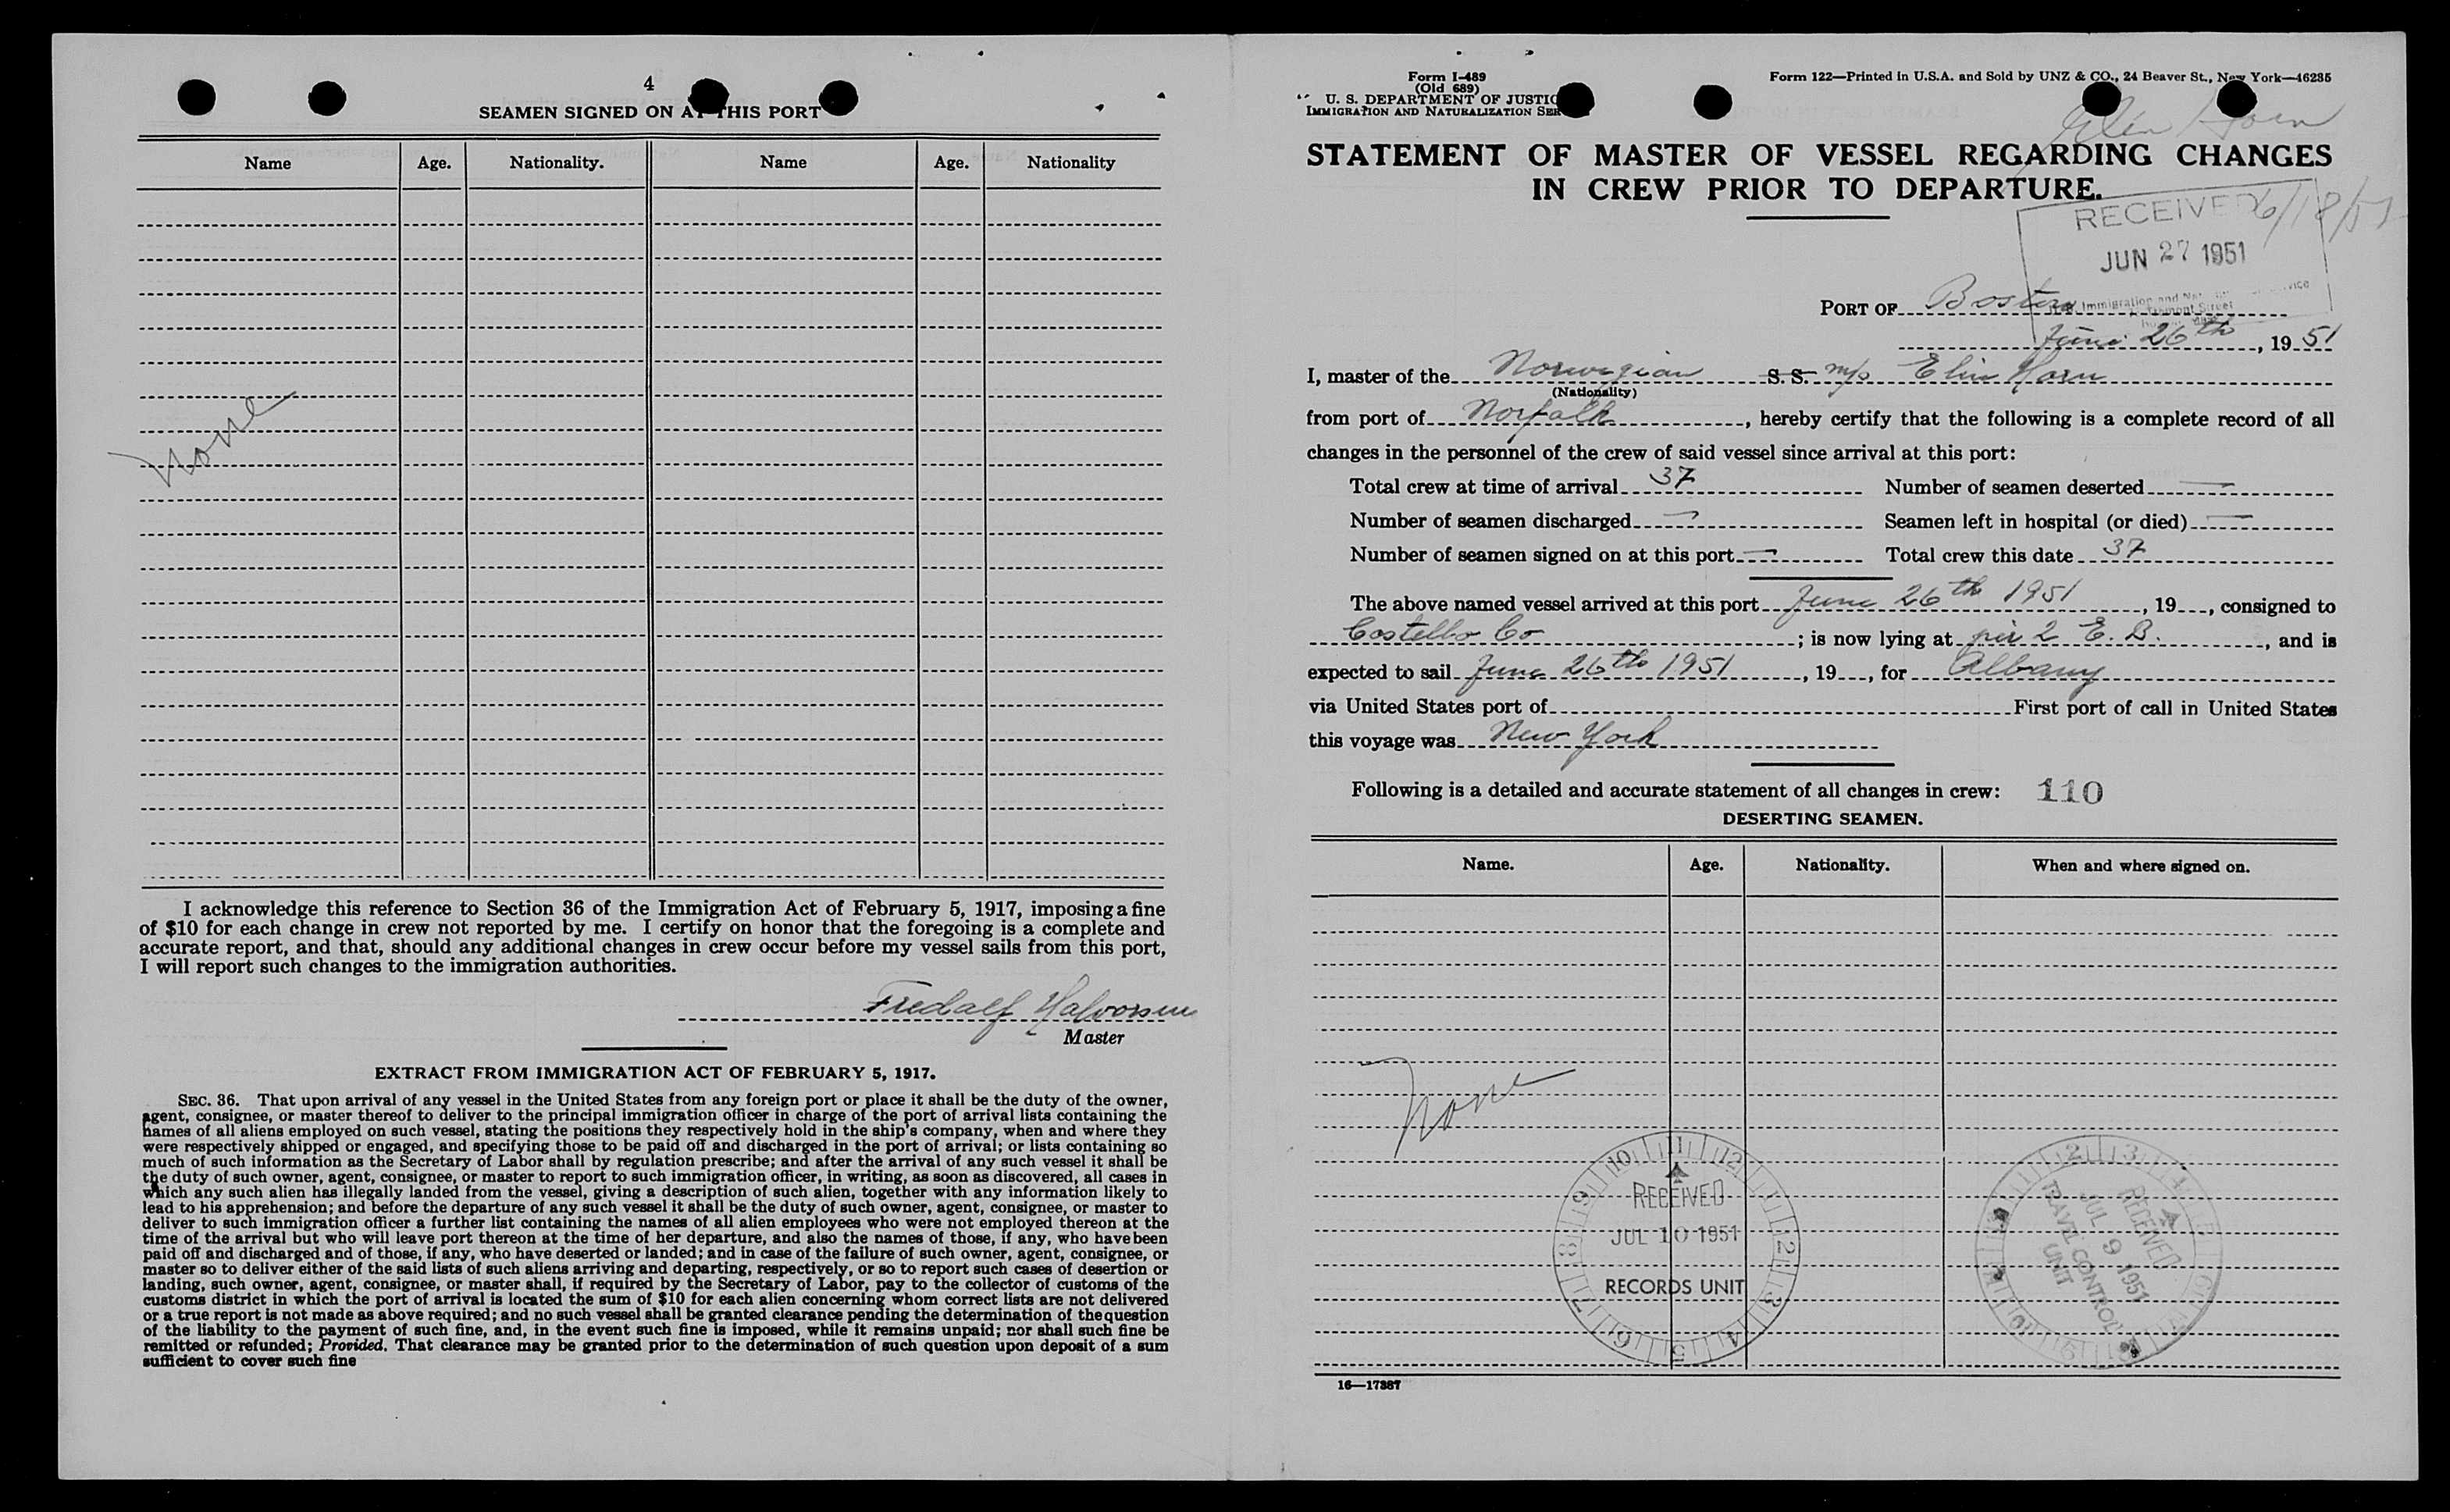 4
SEAMEN SIGNED ON AT THIS PORT
Name Age. Nationality. Name Age. Nationality
None
I acknowledge this reference to Section 36 of the Immigration Act of February 5, 1917, imposing a fine
of $10 for each change in crew not reported by me. I certify on honor that the foregoing is a complete and
accurate report, and that, should any additional changes in crew occur before my vessel sails from this port,
I will report such changes to the immigration authorities.
Fredalf Halvorsen
Master
EXTRACT FROM IMMIGRATION ACT OF FEBRUARY 5, 1917.
SEC. 36. That upon arrival of any vessel in the United States from any foreign port or place it shall be the duty of the owner,
agent, consignee, or master thereof to deliver to the principal immigration officer in charge of the port of arrival lists containing the
names of all aliens employed on such vessel, stating the positions they respectively hold in the ship's company, when and where they
were respectively shipped or engaged, and specifying those to be paid off and discharged in the port of arrival; or lists containing so
much of such information as the Secretary of Labor shall by regulation prescribe; and after the arrival of any such vessel it shall be
the duty of such owner, agent, consignee, or master to report to such immigration officer, in writing, as soon as discovered, all cases in
which any such alien has illegally landed from the vessel, giving a description of such alien, together with any information likely to
lead to his apprehension; and before the departure of any such vessel it shall be the duty of such owner, agent, consignee, or master to
deliver to such immigration officer a further list containing the names of all alien employees who were not employed thereon at the
time of the arrival but who will leave port thereon at the time of her departure, and also the names of those, if any, who have been
paid off and discharged and of those, if any, who have deserted or landed; and in case of the failure of such owner, agent, consignee, or
master so to deliver either of the said lists of such aliens arriving and departing, respectively, or so to report such cases of desertion or
landing, such owner, agent, consignee, or master shall, if required by the Secretary of Labor, pay to the collector of customs of the
customs district in which the port of arrival is located the sum of $10 for each alien concerning whom correct lists are not delivered
or a true report is not made as above required; and no such vessel shall be granted clearance pending the determination of the question
of the liability to the payment of such fine, and, in the event such fine is imposed, while it remains unpaid; nor shall such fine be
remitted or refunded; Provided, That clearance may be granted prior to the determination of such question upon deposit of a sum
sufficient to cover such fine
Form I-489
(Old 689)
U. S. DEPARTMENT OF JUSTIC
IMMIGRATION AND NATURALIZATION SER
Form 122—Printed in U.S.A. and Sold by UNZ & CO., 24 Beaver St., New York—46235
Elin Horn
STATEMENT OF MASTER OF VESSEL REGARDING CHANGES
IN CREW PRIOR TO DEPARTURE.
RECEIVED 6/18/51
JUN 27 1951
Immigration and
PORT OF Boston
June 26th, 19 51
I, master of the Norwegian S. S. m/s Elin Horn
(Nationality)
from port of Norfolk, hereby certify that the following is a complete record of all
changes in the personnel of the crew of said vessel since arrival at this port:
Total crew at time of arrival 37 Number of seamen deserted —
Number of seamen discharged — Seamen left in hospital (or died) —
Number of seamen signed on at this port — Total crew this date 37
The above named vessel arrived at this port June 26th 1951, 19, consigned to
Costello Co; is now lying at pir 2 E. B., and is
expected to sail June 26th 1951, 19, for Albany
via United States port of First port of call in United States
this voyage was New York
Following is a detailed and accurate statement of all changes in crew: 110
DESERTING SEAMEN.
Name. Age. Nationality. When and where signed on.
None
RECEIVED
JUL 10 1951
RECORDS UNIT
RECEIVED
JUL 9 1951
TRAVEL CONTROL
UNIT
16—17387